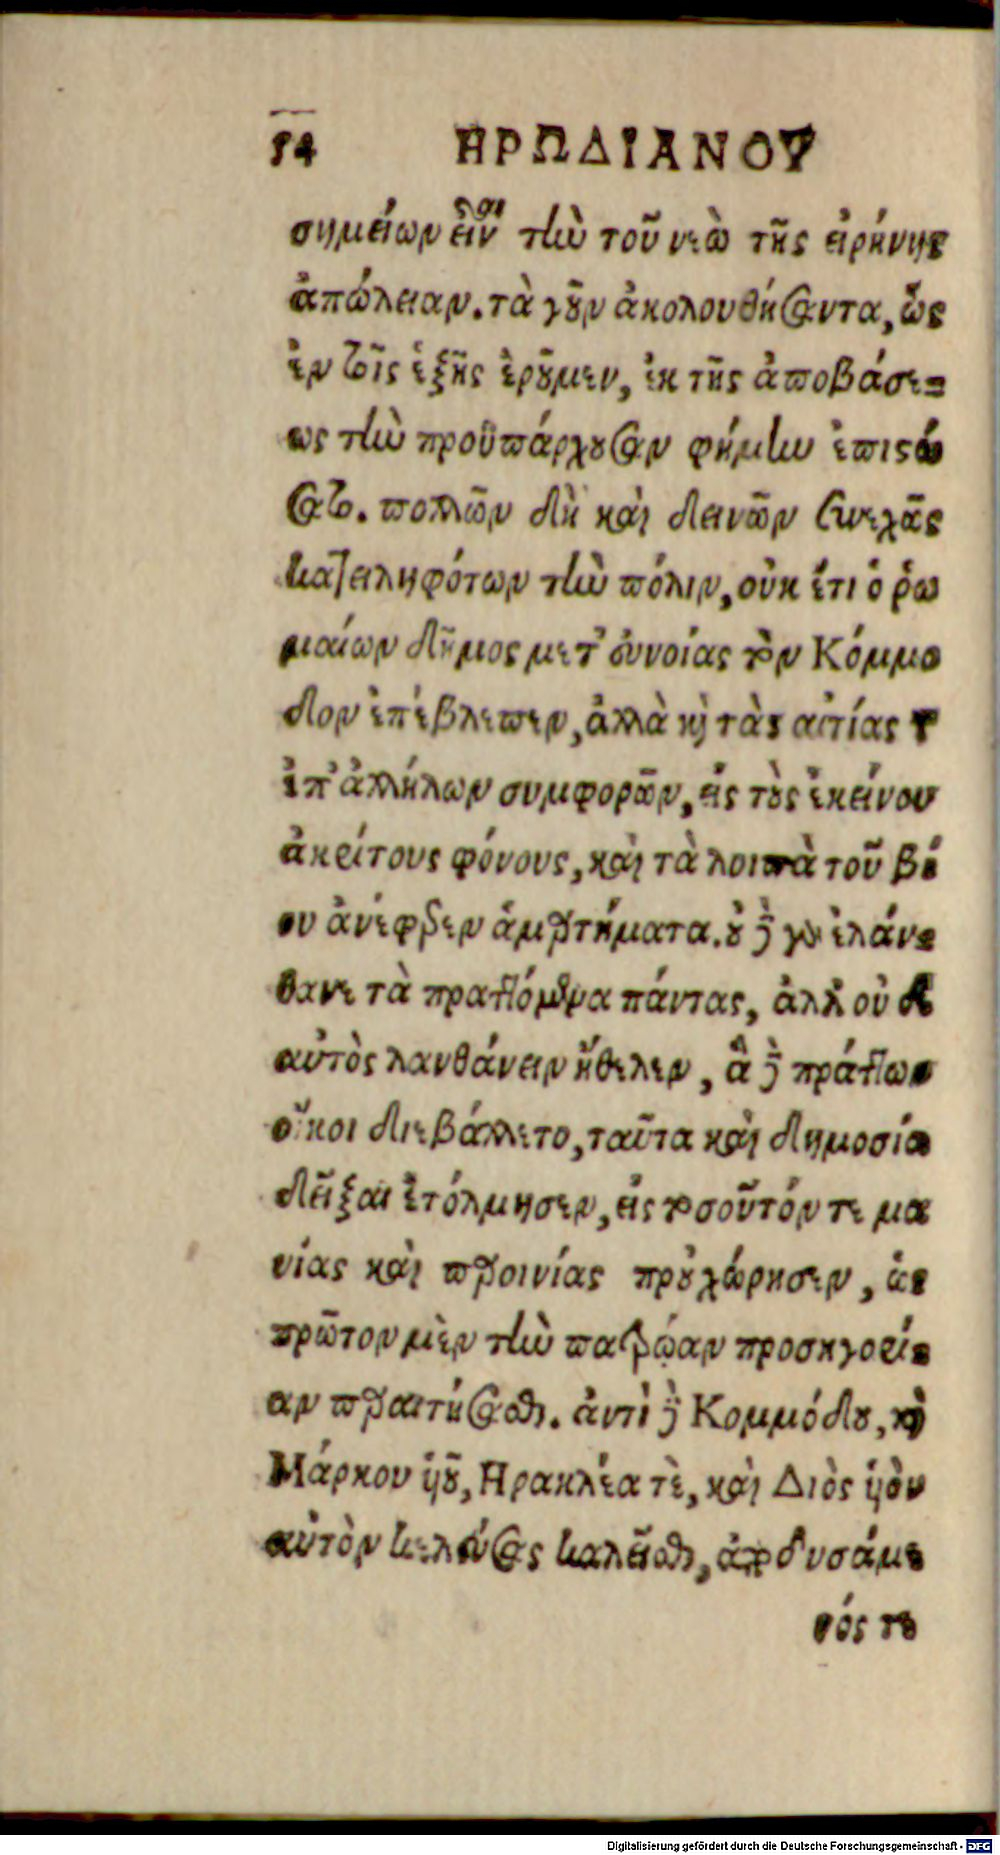 54 ΗΡΩΔΙΑΝΟΥ
σημείων εἶναι τὴν τοῦ νεὼ τῆς εἰρήνης
ἀπώλειαν. τὰ γοῦν ἀκολουθήσαντα, ὡς
ἐν τοῖς ἑξῆς ἐροῦμεν, ἐκ τῆς ἀποβάσε-
ως τὴν προϋπάρχουσαν φήμην ἐπιστώ
σατο. πολλῶν δὴ καὶ δεινῶν συνεχῶς
κατειληφότων τὴν πόλιν, οὐκ έτι ὁ ῥω
μαίων δῆμος μετ' εὐνοίας τὸν Κόμμο
δον ἐπέβλεπεν, ἀλλὰ καὶ τὰς αἰτίας τῶν
ἐπ' ἀλλήλων συμφορῶν, εἰς τοὺς ἐκείνου
ἀκρίτους φόνους, καὶ τὰ λοιπὰ τοῦ βί
ου ἀνέφερεν ἁμαρτήματα. οὐδὲ γὰρ ἐλάν-
θανε τὰ πραττόμενα πάντας, ἀλλ' οὐδὲ
αὐτὸς λανθάνειν ἤθελεν, ἃ δὲ πράττων
οἴκοι διεβάλλετο, ταῦτα καὶ δημοσίᾳ
δεῖξαι ἐτόλμησεν, εἰς τοσοῦτόν τε μα
νίας καὶ παροινίας προὐχώρησεν, ὡς
πρῶτον μὲν τὴν πατρῴαν προσηγορί-
αν παραιτήσασθαι. ἀντὶ δὲ Κομμόδου, καὶ
Μάρκου υἱοῦ, Ηρακλέα τὲ, καὶ Διὸς υἱὸν
αὐτὸν κελεύσας καλεῖσθαι, ἀποδυσάμε
νός το
Digitalisierung gefördert durch die Deutsche Forschungsgemeinschaft - DFG